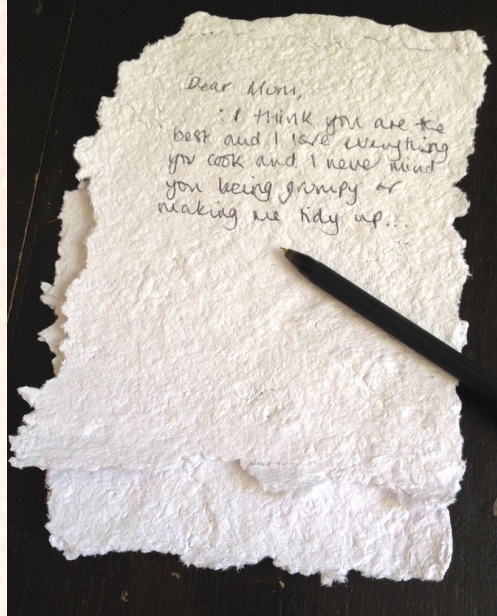 Dear Mom,
I think you are the
best and I love everything
you cook and I never mind
you being grumpy or
making me tidy up...